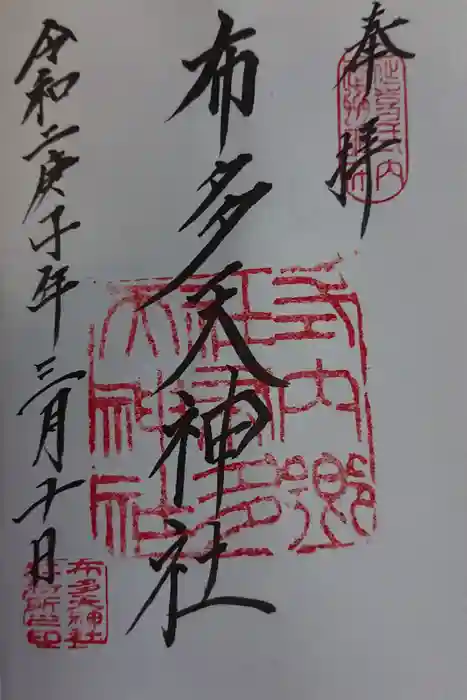 奉拝
延喜式内
布多天神社
式内郷
社布多
天神社
令和二庚子年三月十日
布多天神社